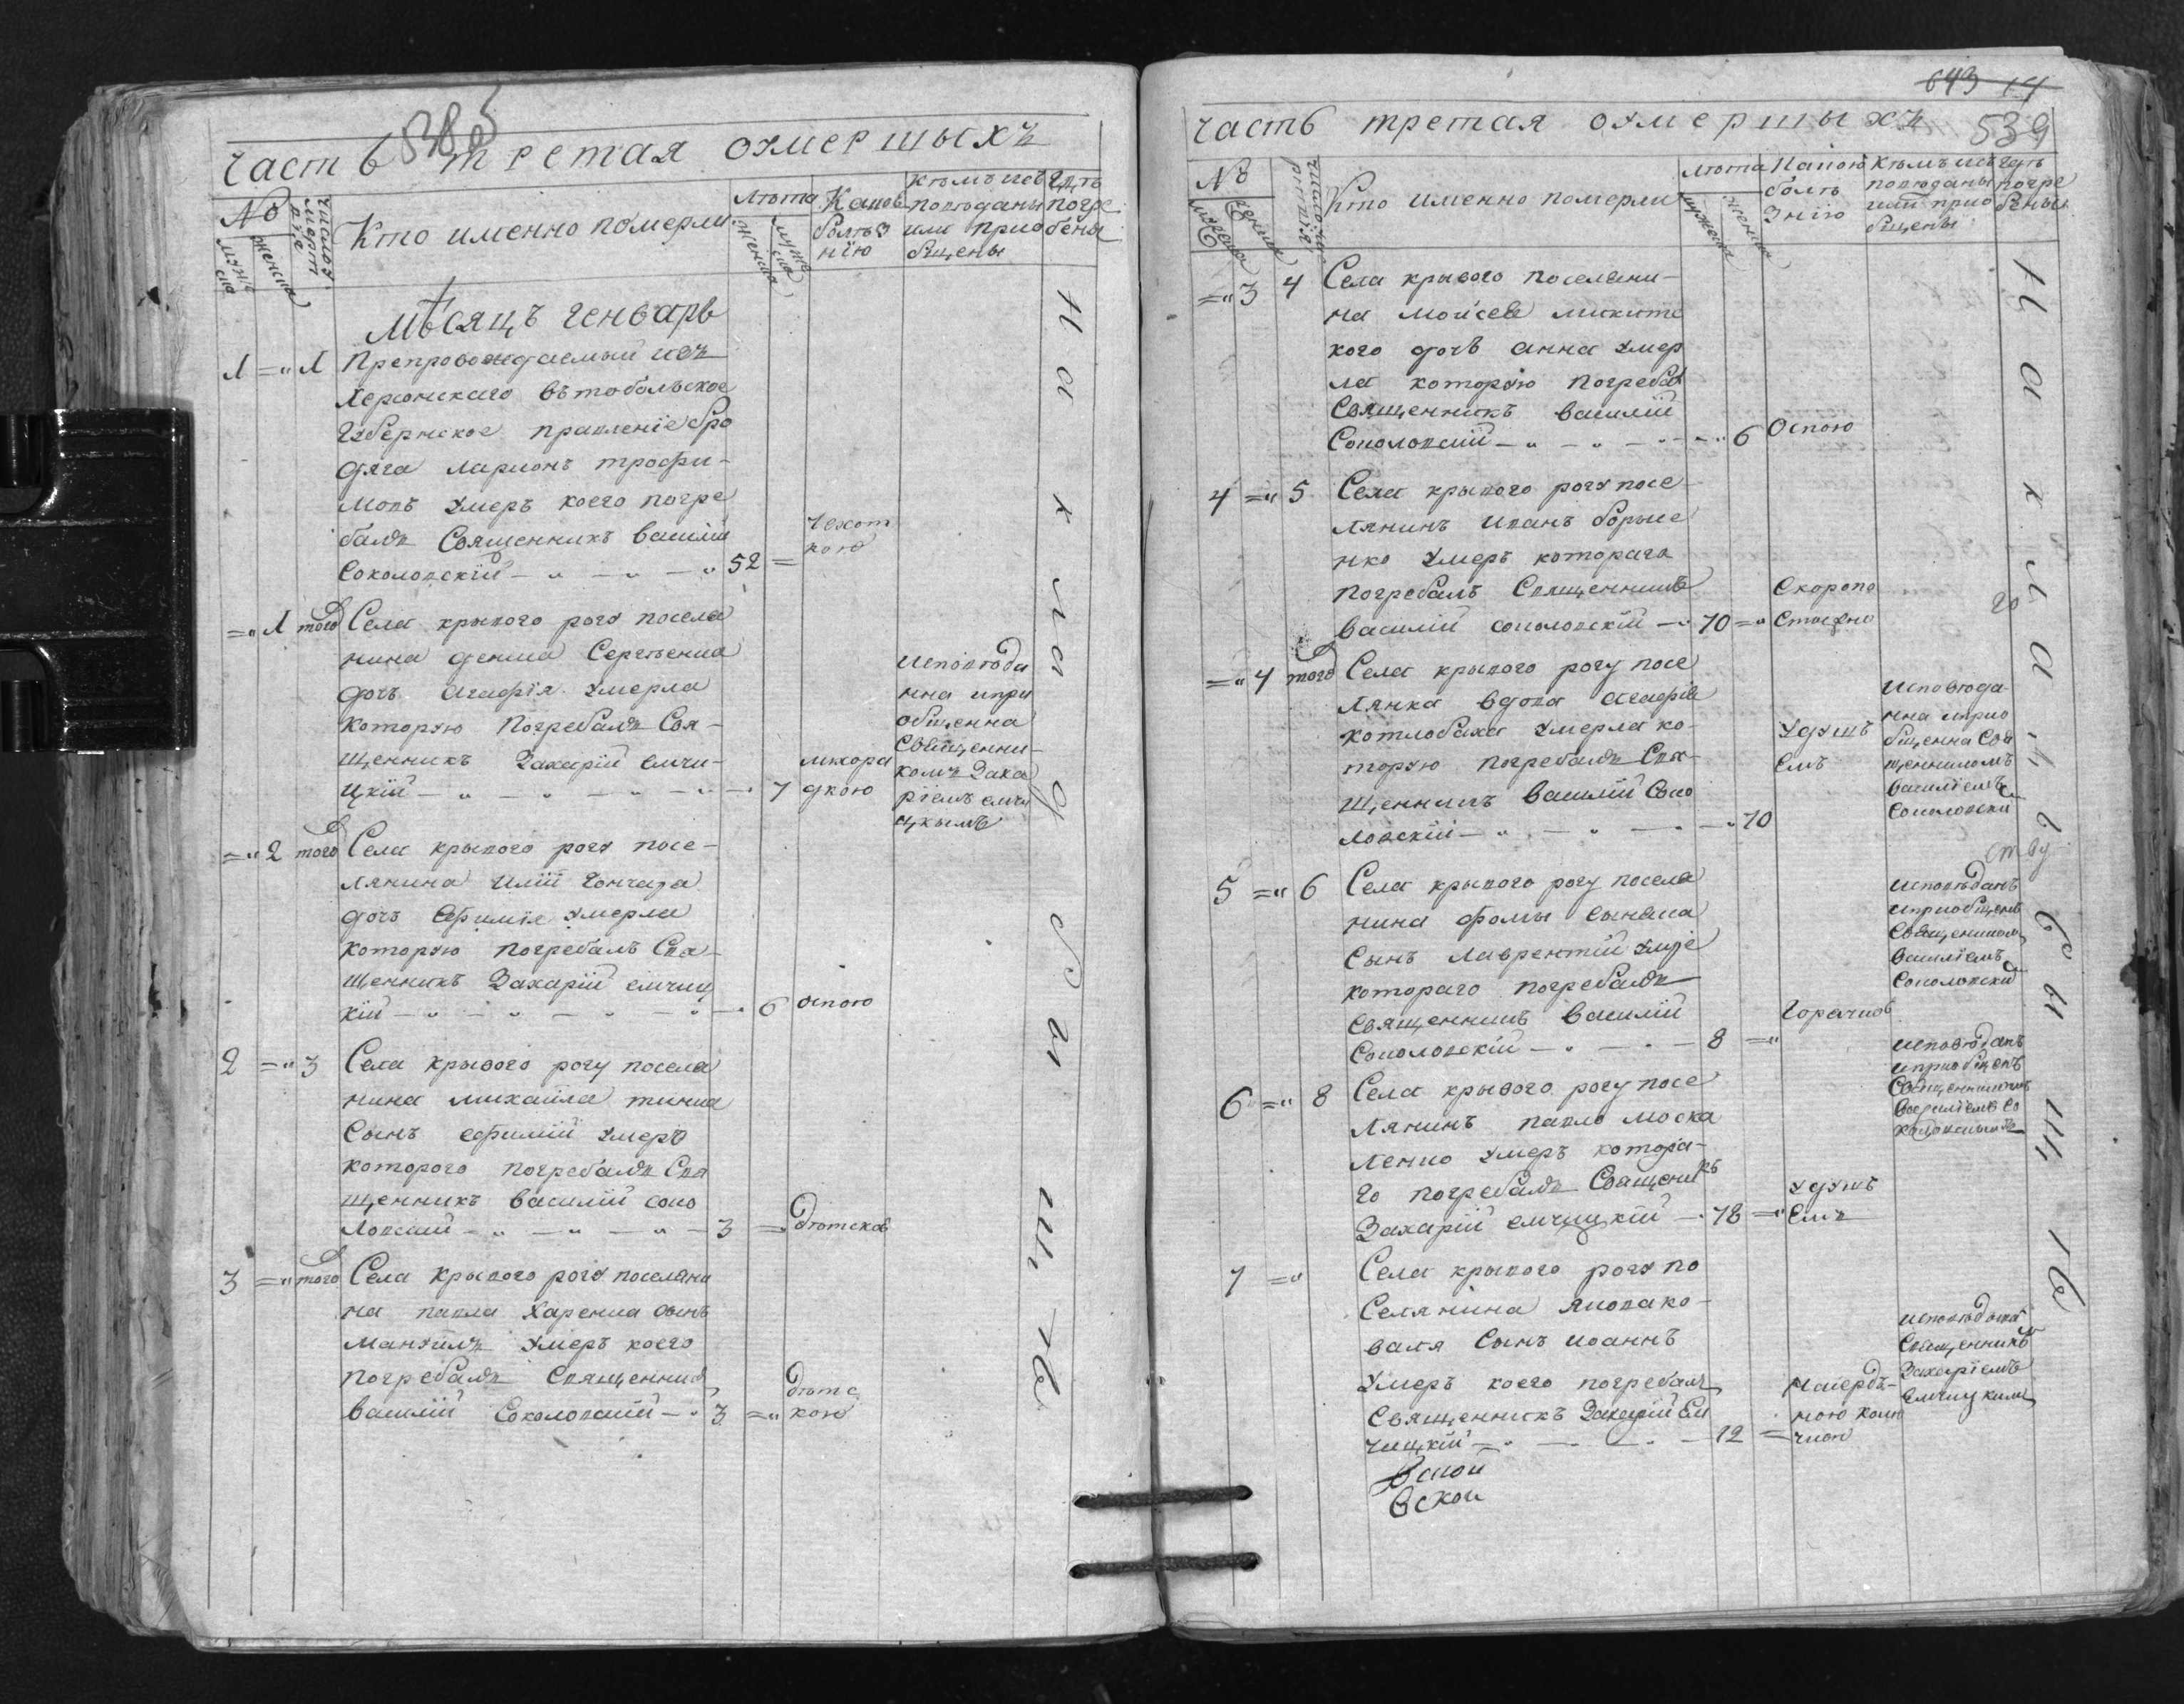 5385
часть третая оумершыхъ
№
мужеска
женска
число смерти
Кто именно померли
Лѣта
Какою болѣзнію
кѣмъ исповѣданы или приобщены
Гдѣ погребены
Мѣсяцъ Генварь
1 =" 1 Препровождаемый изъ
Херсонскаго въ тобольское
Губернское правленіе бро
дяга Ларионъ трофи-
мовъ умеръ коего погре
балъ Священникъ Василій
Соколовскій — " — " — " 52 =
Чехот
кою
=" 1 того Села крывого рогу поселя
нина дениса Сергѣенка
дочъ Агафія умерла
которую Погребалъ Свя-
щенникъ Захарій емчи-
цкій — " — " — " — 7
лихора
дкою
исповѣда
нна ипри
общенна
Священни-
комъ Заха
ріемъ емчи
цкымъ
=" 2 того Села крывого рогу посе-
лянина Иліи Гончара
дочъ Ефимія умерла
которую погребалъ Свя-
щенникъ Захарій емчиц
кій — " — " — " — " — 6 оспою
2 =" 3 Села крывого рогу поселя
нина михайла
сынъ ефимій умеръ
которого погребалъ Свя
щенникъ василій соко
ловскій — " — " — " — 3 = дѣтскою
3 =" того Села Крывого рогу поселяни
на павла Харенка сынъ
Мануилъ умеръ коего
погребалъ Священникъ
василій Соколовскій — " 3 ="
дѣтс
кою
На кладбыщѣ
643 14
539
часть третая оумершыхъ
№
мужеска
женска
число смерти
Кто именно померли
лѣта
мужеска
женска
Какою
болѣ
знію
Кѣмъ исъ
повѣданы
или прио
бщены
Гдѣ
погре
бены
=" 3 4 Села крывого поселяни-
на Мойсея микитс
кого дочъ анна умер
ла которую погребал
Священникъ василій
Соколовскій — " — " — " — " 6 Оспою
4 =" 5 Села крывого рогу посе
лянинъ иванъ борысе
нко умеръ котораго
погребалъ Священникъ
василій соколовскій — " 70 ="
Скоропо
стыжно
=" 4 того Села крывого рогу посе
лянка вдова агафія
котлобаха умерла ко-
торую погребалъ Свя-
щенникъ василій Соко
ловскій — " — " — " — " 70
Удуш
емъ
исповѣда-
нна иприо
бщенна Свя
щенникомъ
василіемъ
Соколовски
5 =" 6 Села крывого рогу поселя
нина фомы
сынъ лаврентій умре
котораго погребалъ
священникъ василій
Соколовскій — " — " — 8 ="
Горячков
исповѣданъ
иприобщенъ
Священником
василіемъ
Соколовски
6 =" 8 Села крывого рогу посе
лянинъ павло моска
ленко умеръ котора-
го погребалъ Священикъ
Захарій емчицкій — " 78 ="
удуш
емъ
исповѣданъ
иприобщенъ
Священникомъ
василіемъ Со
коловскимъ
7 =" Села крывого рогу по
селянина якова ко-
валя сынъ иоаннъ
умеръ коего погребалъ
Священникъ Захарій Ем
чицкій — " — " — " — 12 =
исповѣдан
Священникъ
Захаріемъ
Емчицким
На кладбыщѣ